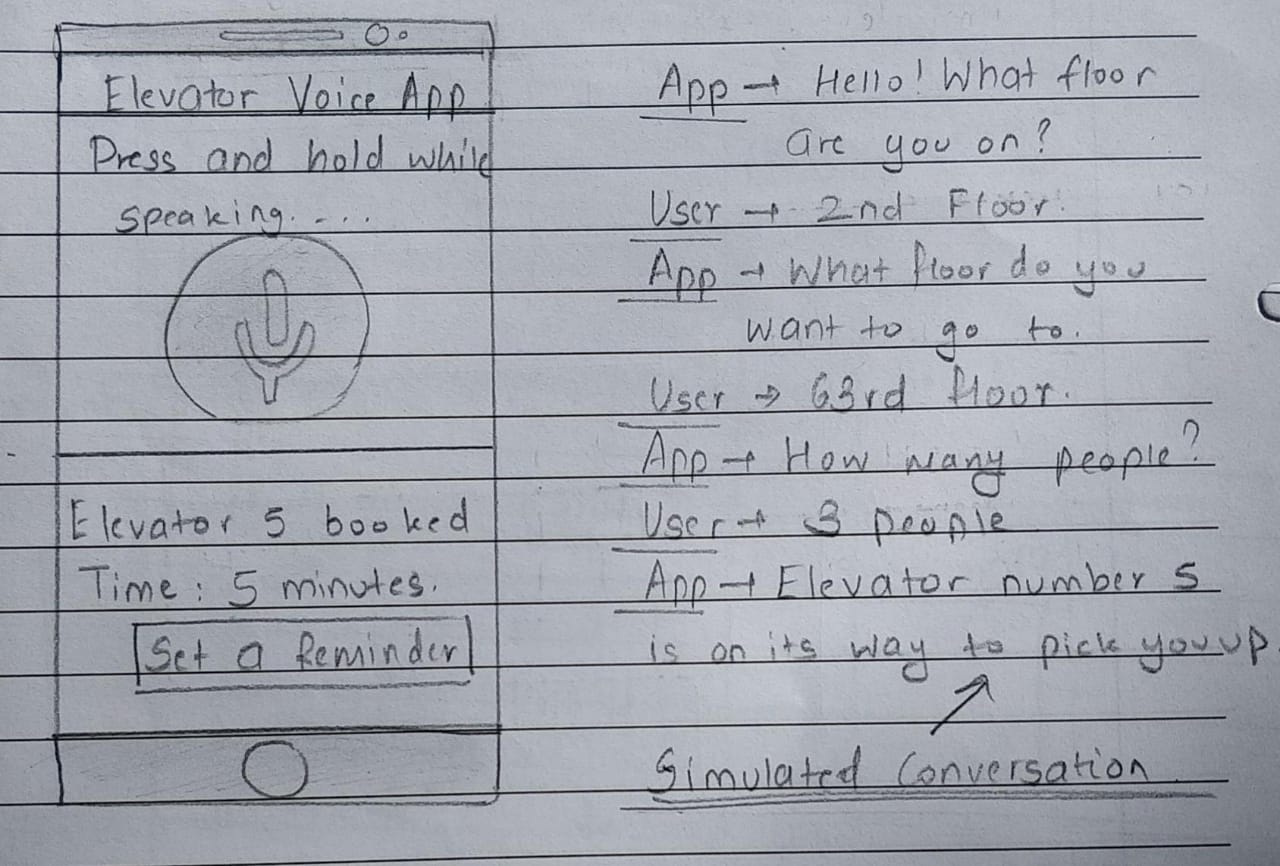 Elevator Voice App
Press and hold while
speaking....
Elevator 5 booked
Time: 5 minutes.
Set a Reminder
App → Hello! What floor
are you on?
User → 2nd Floor.
App → What floor do you
want to go to.
User → 63rd floor.
App → How many people?
User → 3 people
App → Elevator number 5
is on its way to pick you up.
Simulated Conversation